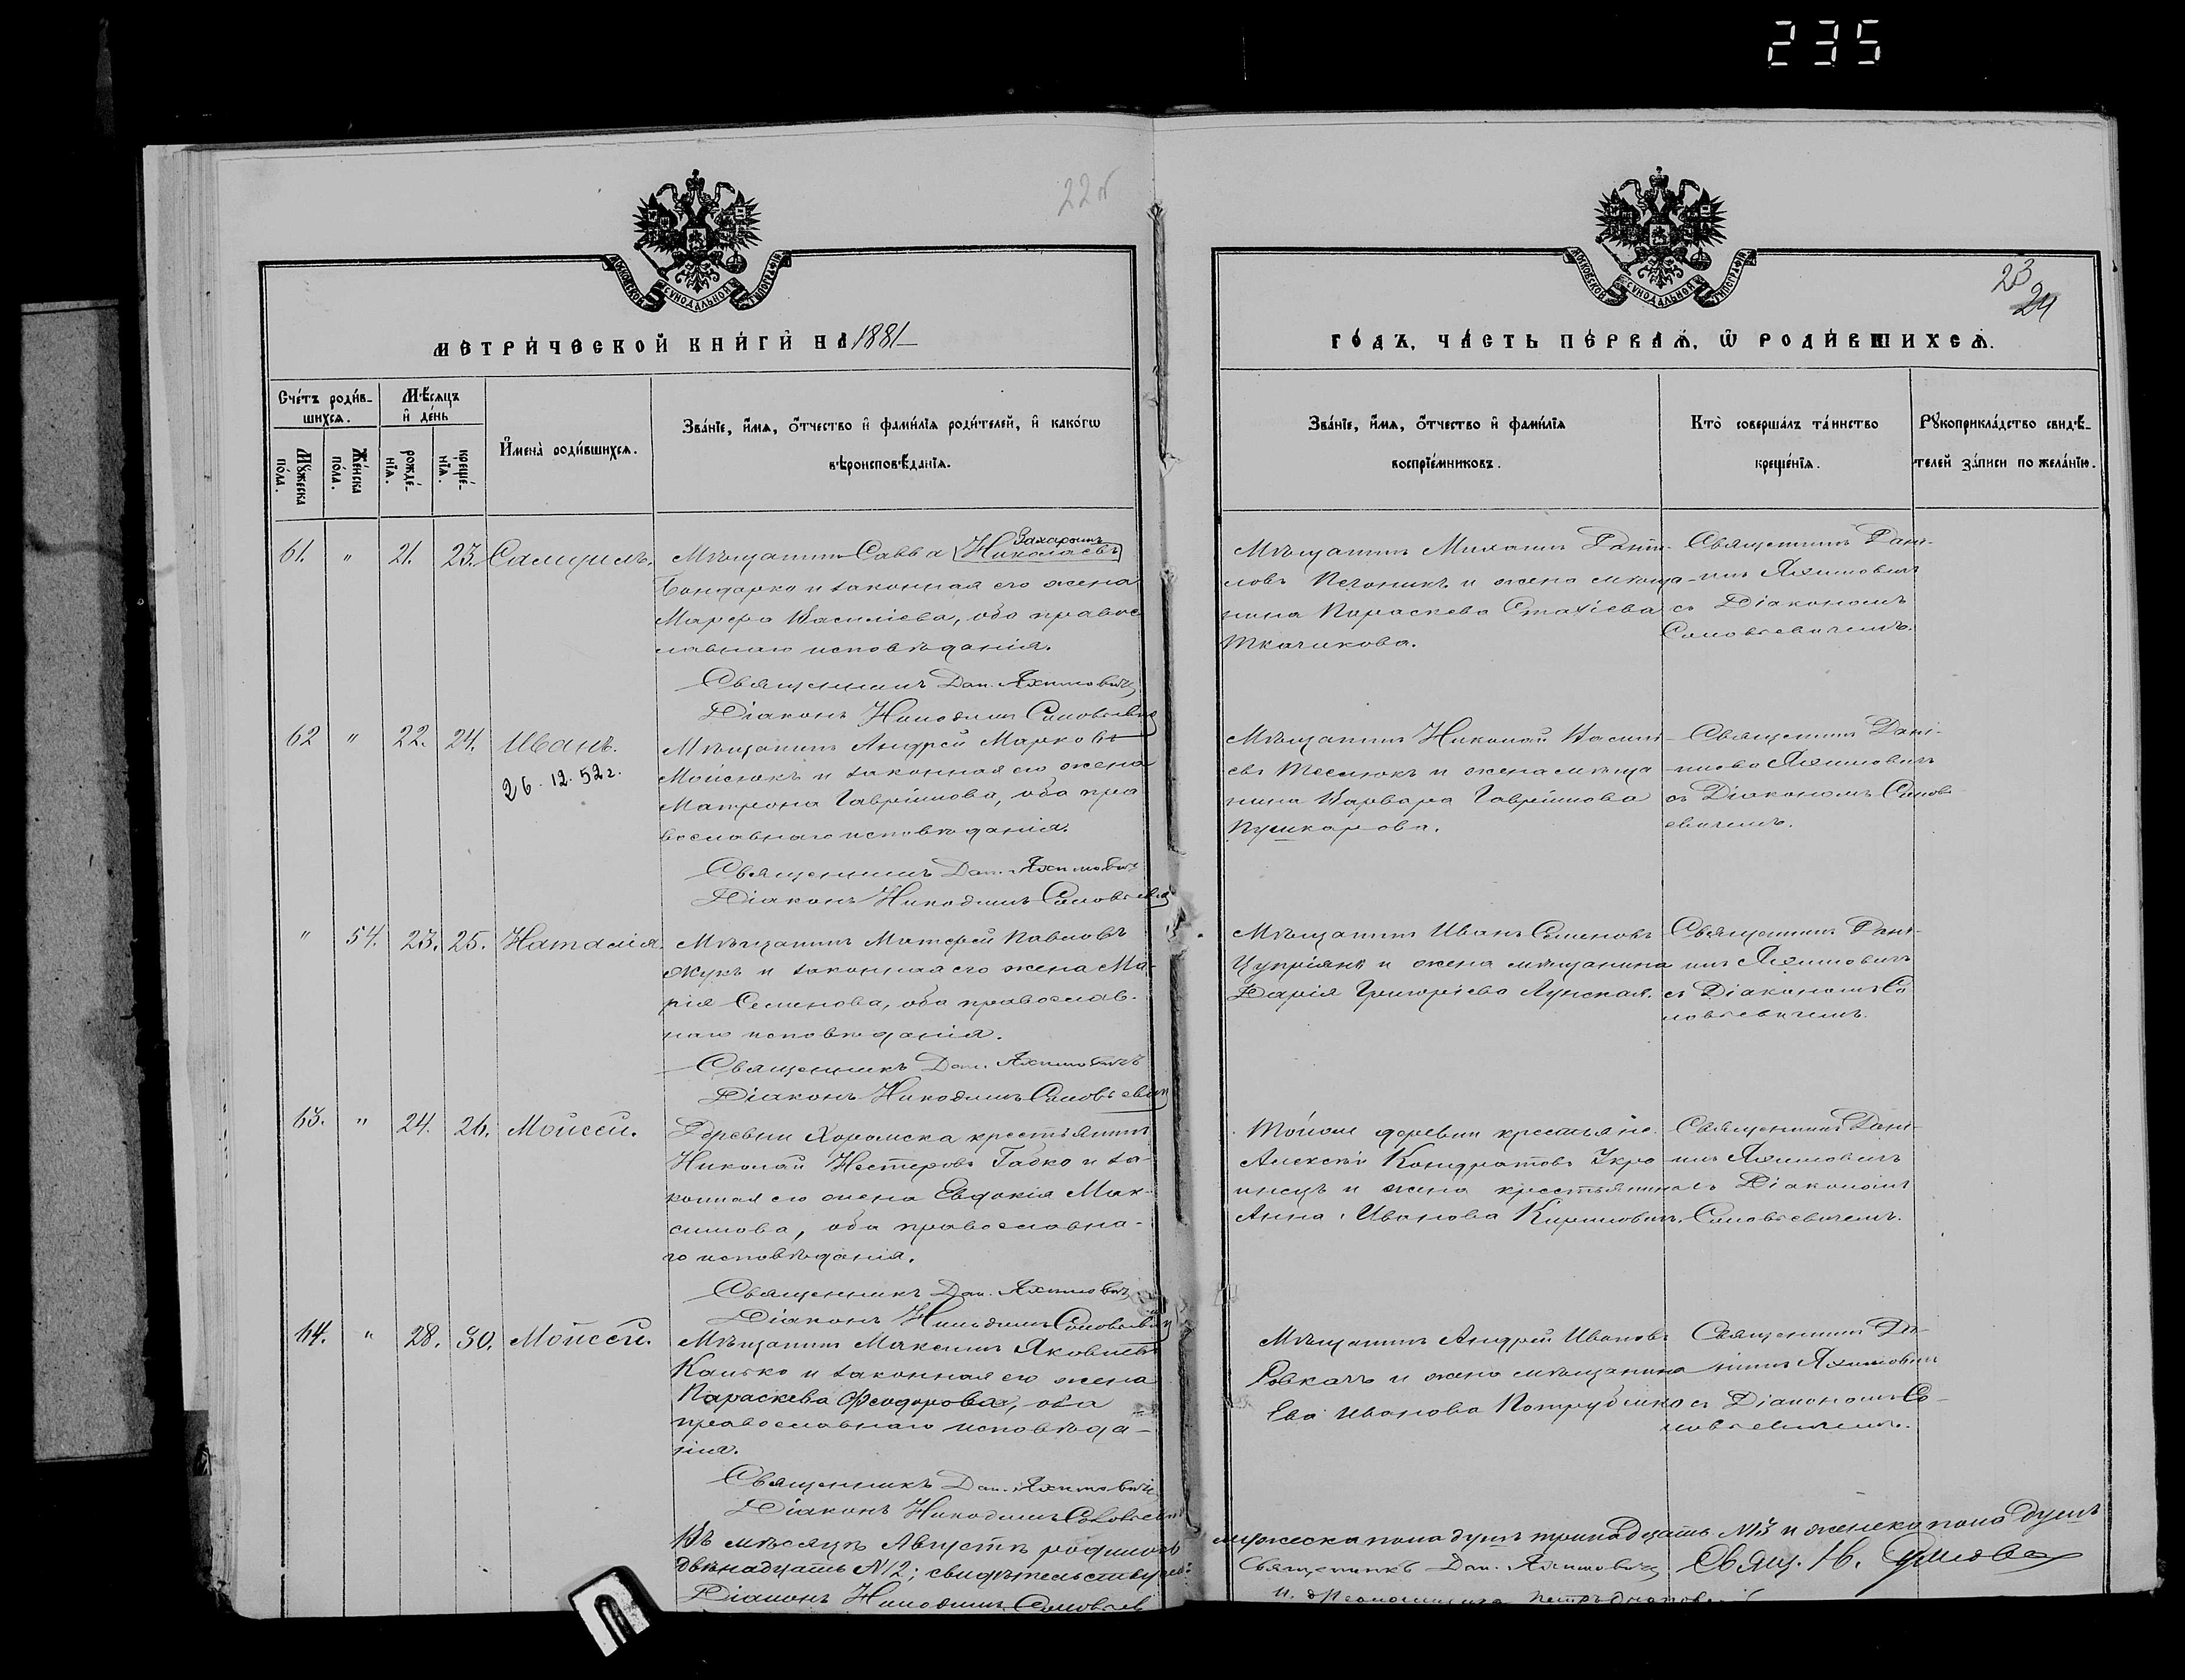 235
22 об
23
24
МОСКОВСКОЙ СУНОДАЛЬНОЙ ТИПОГРАФІИ
МОСКОВСКОЙ СУНОДАЛЬНОЙ ТИПОГРАФІИ
МЕТРИ́ЧЕСКОЙ КНИ́ГИ НА 1881
ГО́ДЪ, ЧА́СТЬ ПЕ́РВАѦ, Ѿ РОДИ́ВШИХСѦ.
Сче́тъ роди́в-
шихсѧ.
Мꙋ́жеска по́ла.
Же́нска по́ла.
Мѣ́сѧцъ
и҆ де́нь
рожде́-нїѧ.
креще́-нїѧ.
И҆мена̀ роди́вшихсѧ.
Зва́нїе, и҆́мѧ, ѻ҆́тчество и҆ фами́лїѧ роди́телей, и҆ како́гѡ
вѣроисповѣ́данїѧ.
Зва́нїе, и҆́мѧ, ѻ҆́тчество и҆ фами́лїѧ
воспрїе́мниковъ.
Кто̀ соверша́лъ та́инство
креще́нїѧ.
Рꙋкоприкла́дство свидѣ́-
телей за́писи по жела́нїю.
61. " 21. 23. Самуилъ.
Захаровъ
Мѣщанинъ Савва Николаевъ
Бондарко и законная его жена
Марфа Василіева, оба правос
лавнаго исповѣданія.
Священникъ Дан. Яхимовичъ
Діаконъ Никодимъ Соловьевич
Мѣщанинъ Михаилъ Дани-
ловъ и жена мѣща-
нина Параскева Стахіева
Ткачикова.
Священникъ Дані-
илъ Яхимовичъ
съ Діакономъ
Соловьевичемъ.
62 " 22. 24. Иванъ.
26. 12. 52 г.
Мѣщанинъ Андрей Марковъ
Мойсюкъ и законная его жена
Матрона Гаврiилова, оба пра
вославнаго исповѣданія.
Священникъ Дан. Яхимовичъ
Діаконъ Никодимъ Соловьевич
Мѣщанинъ Николай Васили-
евъ и жена мѣща
нина Варвара Гавріилова
Пушкарова.
Священникъ Дані-
Яхимовичъ
съ Діакономъ Солов
евичемъ.
" 54. 23. 25. Наталія.
Мѣщанинъ Матфей Павловъ
Жукъ и законная его жена Ма-
рія Семенова, оба православ-
наго исповѣданія.
Священникъ Дан. Яхимовичъ
Діаконъ Никодимъ Соловьевич
Мѣщанинъ Иванъ Семеновъ
и жена мѣщанина
Дарія Григоріева Лунская.
Священникъ Дані-
илъ Яхимовичъ
съ Діакономъ Со
ловьевичемъ.
63. " 24. 26. Моисей.
Деревни Хоромска крестьянинъ
Николай Нестеровъ Гадко и за-
конная его жена Евдокія Мак-
симова, оба православна-
го исповѣданія.
Священникъ Дан. Яхимовичъ
Діаконъ Никодимъ Соловьевич
Тойже деревни крестьяне
Алексѣй Кондратовъ Укра
инецъ и жена крестьянина
Анна Иванова
Священникъ Дані-
илъ Яхимовичъ
съ Діакономъ
Соловьевичемъ.
64. " 28. 30. Моисей.
Мѣщанинъ Максимъ Яковлевъ
Калько и законная его жена
Параскева Феодорова, оба
православнаго исповѣда-
нія.
Священникъ Дан. Яхимовичъ
Діаконъ Никодимъ Соловьевич
Мѣщанинъ Андрей Ивановъ
Ровкачъ и жена мѣщанина
Ева Иванова
Священникъ Да-
ніилъ Яхимовичъ
съ Діакономъ Со-
ловьевичемъ.
Въ мѣсяцѣ Августѣ родилось мужеска пола душъ тринадцать №13 и женска пола душъ
двѣнадцать №12; свидѣтельствуемъ: Священникъ Дан. Яхимовичъ Свящ. Н.
Діаконъ Никодимъ Соловьев